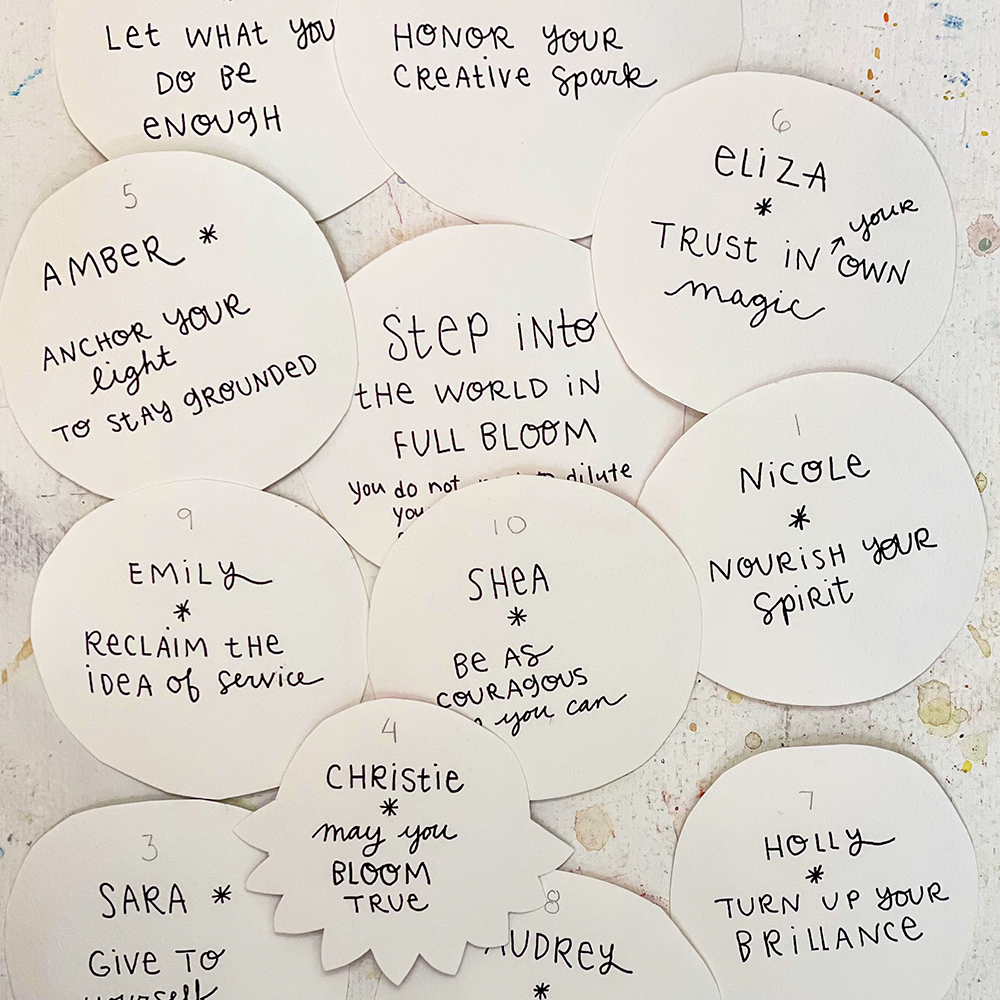 Let WHAt YOU
DO Be
eNOUgH
HONOR YOUR
CReAtive Spark
6
eLiZA
*
TRUSt iN ↗ your
OWN
magic
5
AMBeR *
ANCHOR YOUR
light
TO StAY gROUNDeD
Step iNto
tHe WORLD iN
FULL BLOOM
you do not dilute
you
1
NiCOLe
*
NOURiSH YOUR
SpiRit
9
EMiLY
*
ReCLAiM tHe
iDeA of service
10
SHeA
*
Be AS
COURAgOUS
you can
4
CHRiStie
*
may you
BLOOM
TRUe
7
HOLLY
*
TURN UP YOUR
BRiLLANCe
3
SARA *
GiVe TO
yourself
8
AUDReY
*